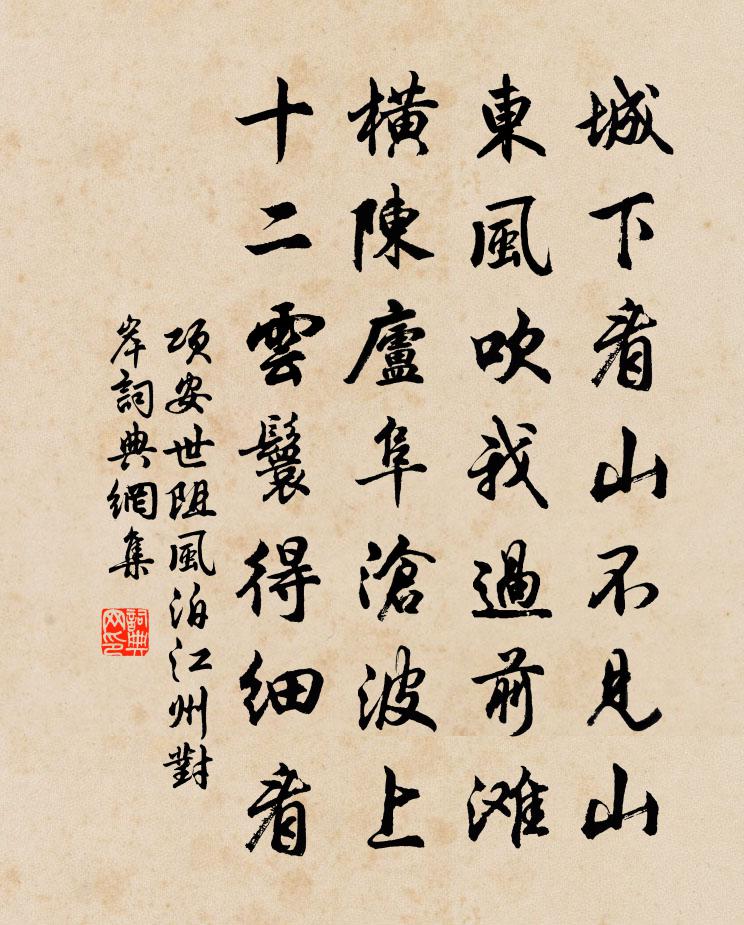 城下看山不見山
東風吹我過前滩
橫陳廬阜滄波上
十二雲鬟得细看
項安世阻風泊江州對
岸詞典網集
詞典网印